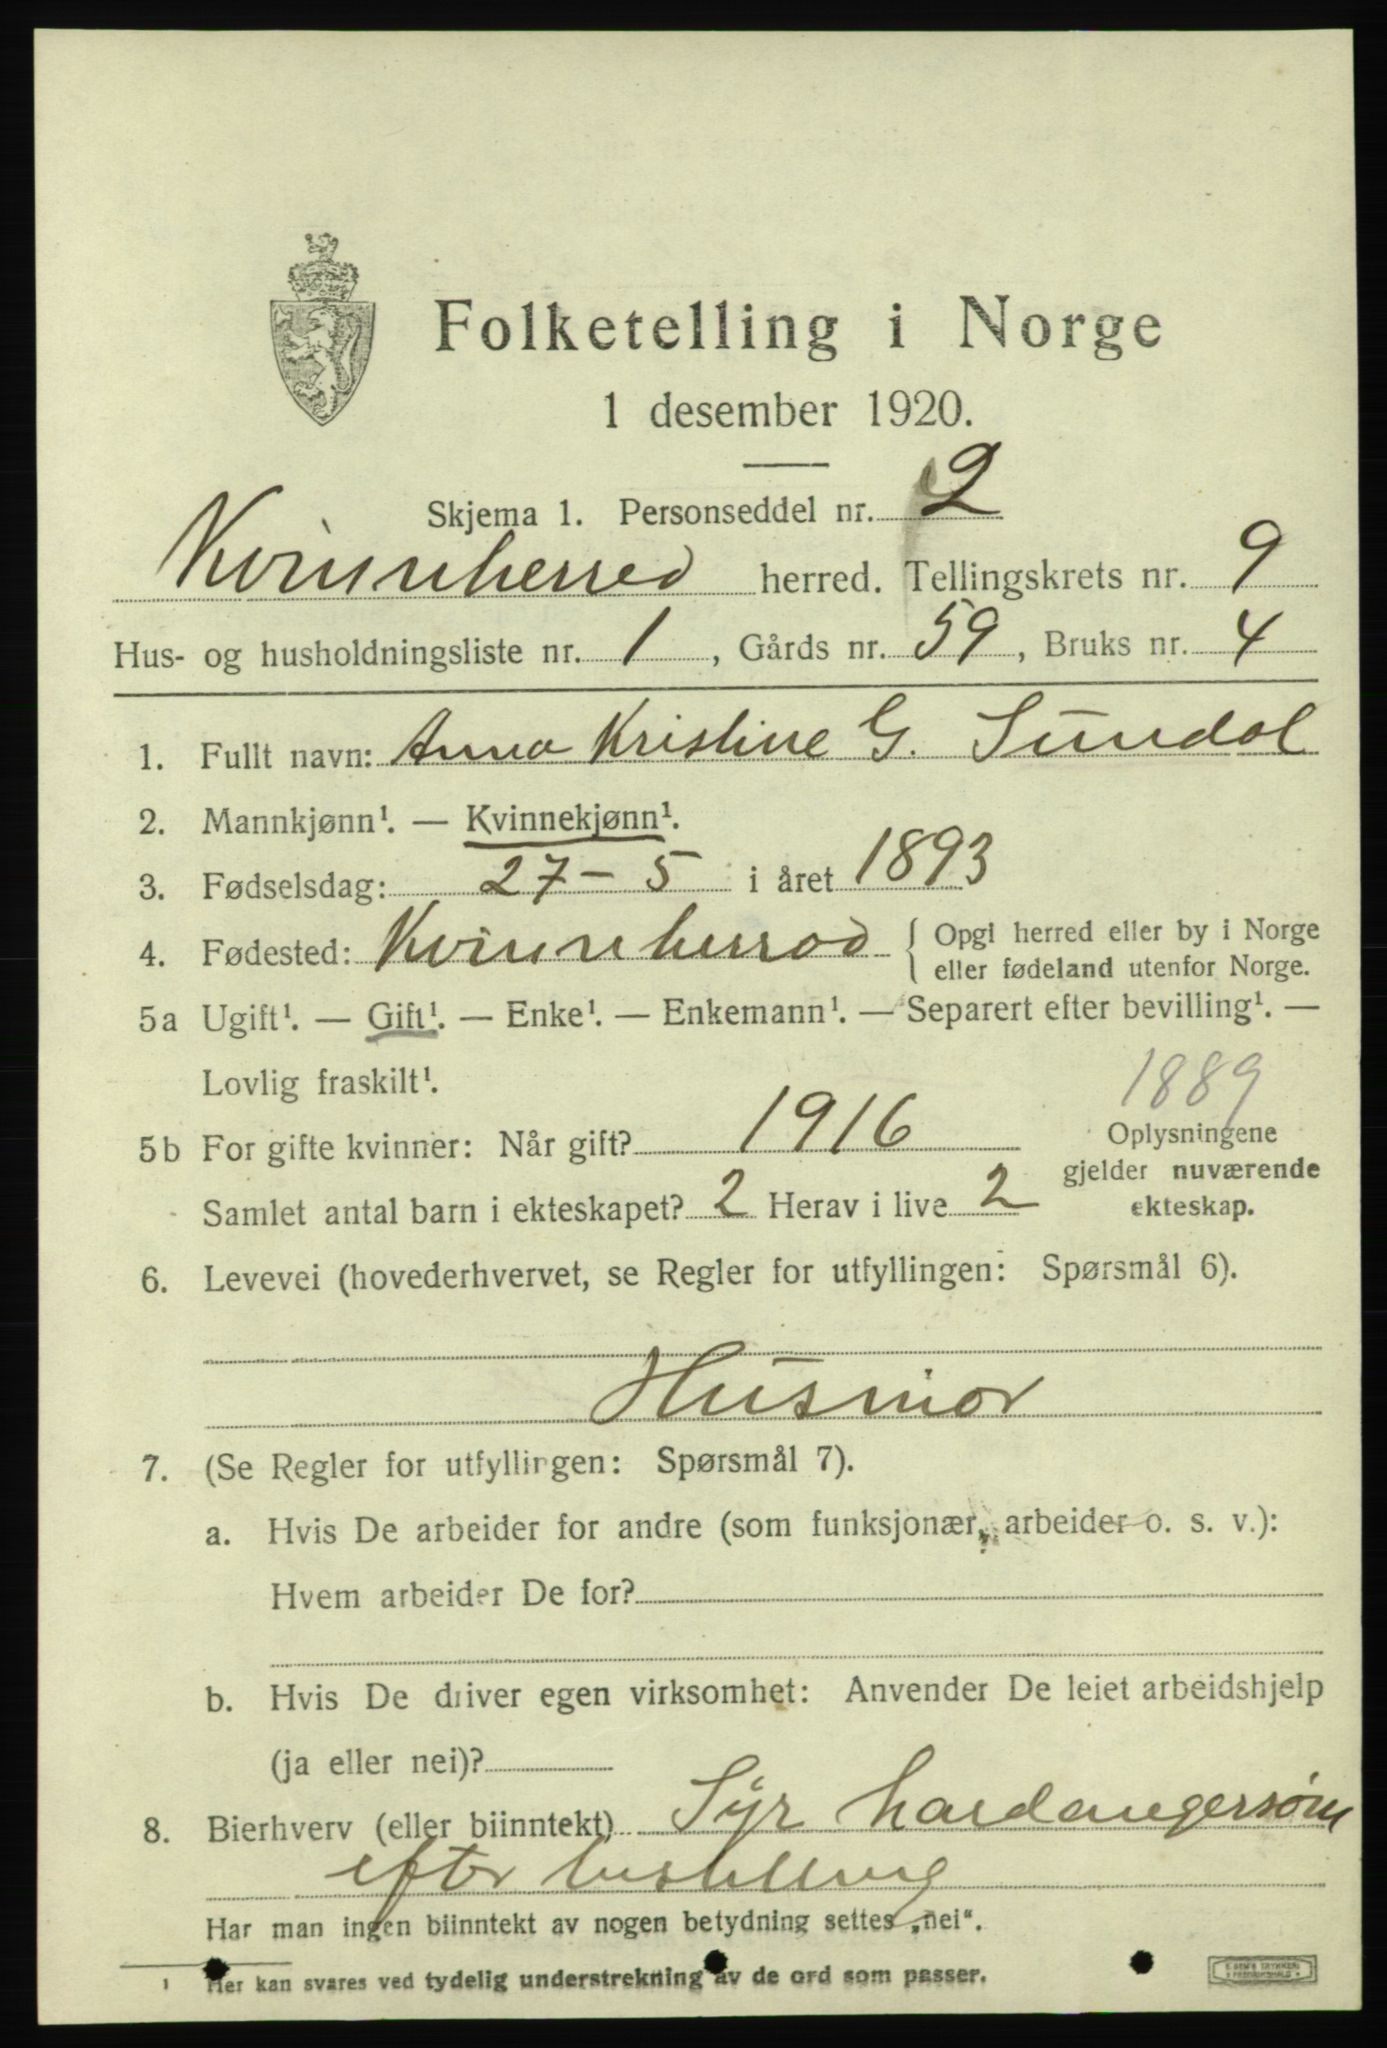 Folketelling i Norge
1 desember 1920.
Skjema 1. Personseddel nr. 2
Kvinnherred herred. Tellingskrets nr. 9
Hus- og husholdningsliste nr. 1, Gårds nr. 59, Bruks nr. 4
1. Fullt navn: Anna Kristine G. Sundal
2. Mannkjønn¹. — Kvinnekjønn¹.
3. Fødselsdag: 27 – 5 i året 1893
4. Fødested: Kvinnherred { Opgl herred eller by i Norge
eller fødeland utenfor Norge.
5a Ugift¹. — Gift¹. — Enke¹. — Enkemann¹. — Separert efter bevilling¹. —
Lovlig fraskilt¹.
1889
5b For gifte kvinner: Når gift? 1916
Samlet antal barn i ekteskapet? 2 Herav i live 2
Oplysningene
gjelder nuværende
ekteskap.
6. Levevei (hovederhvervet, se Regler for utfyllingen: Spørsmål 6).
Husmor
7. (Se Regler for utfyllingen: Spørsmål 7).
a. Hvis De arbeider for andre (som funksjonær, arbeider o. s. v.):
Hvem arbeider De for?
b. Hvis De driver egen virksomhet: Anvender De leiet arbeidshjelp
(ja eller nei)?
8. Bierhverv (eller biinntekt) Syr hardangersøm
efter bestilling
Har man ingen biinntekt av nogen betydning settes „nei“.
¹ Her kan svares ved tydelig understrekning av de ord som passer.